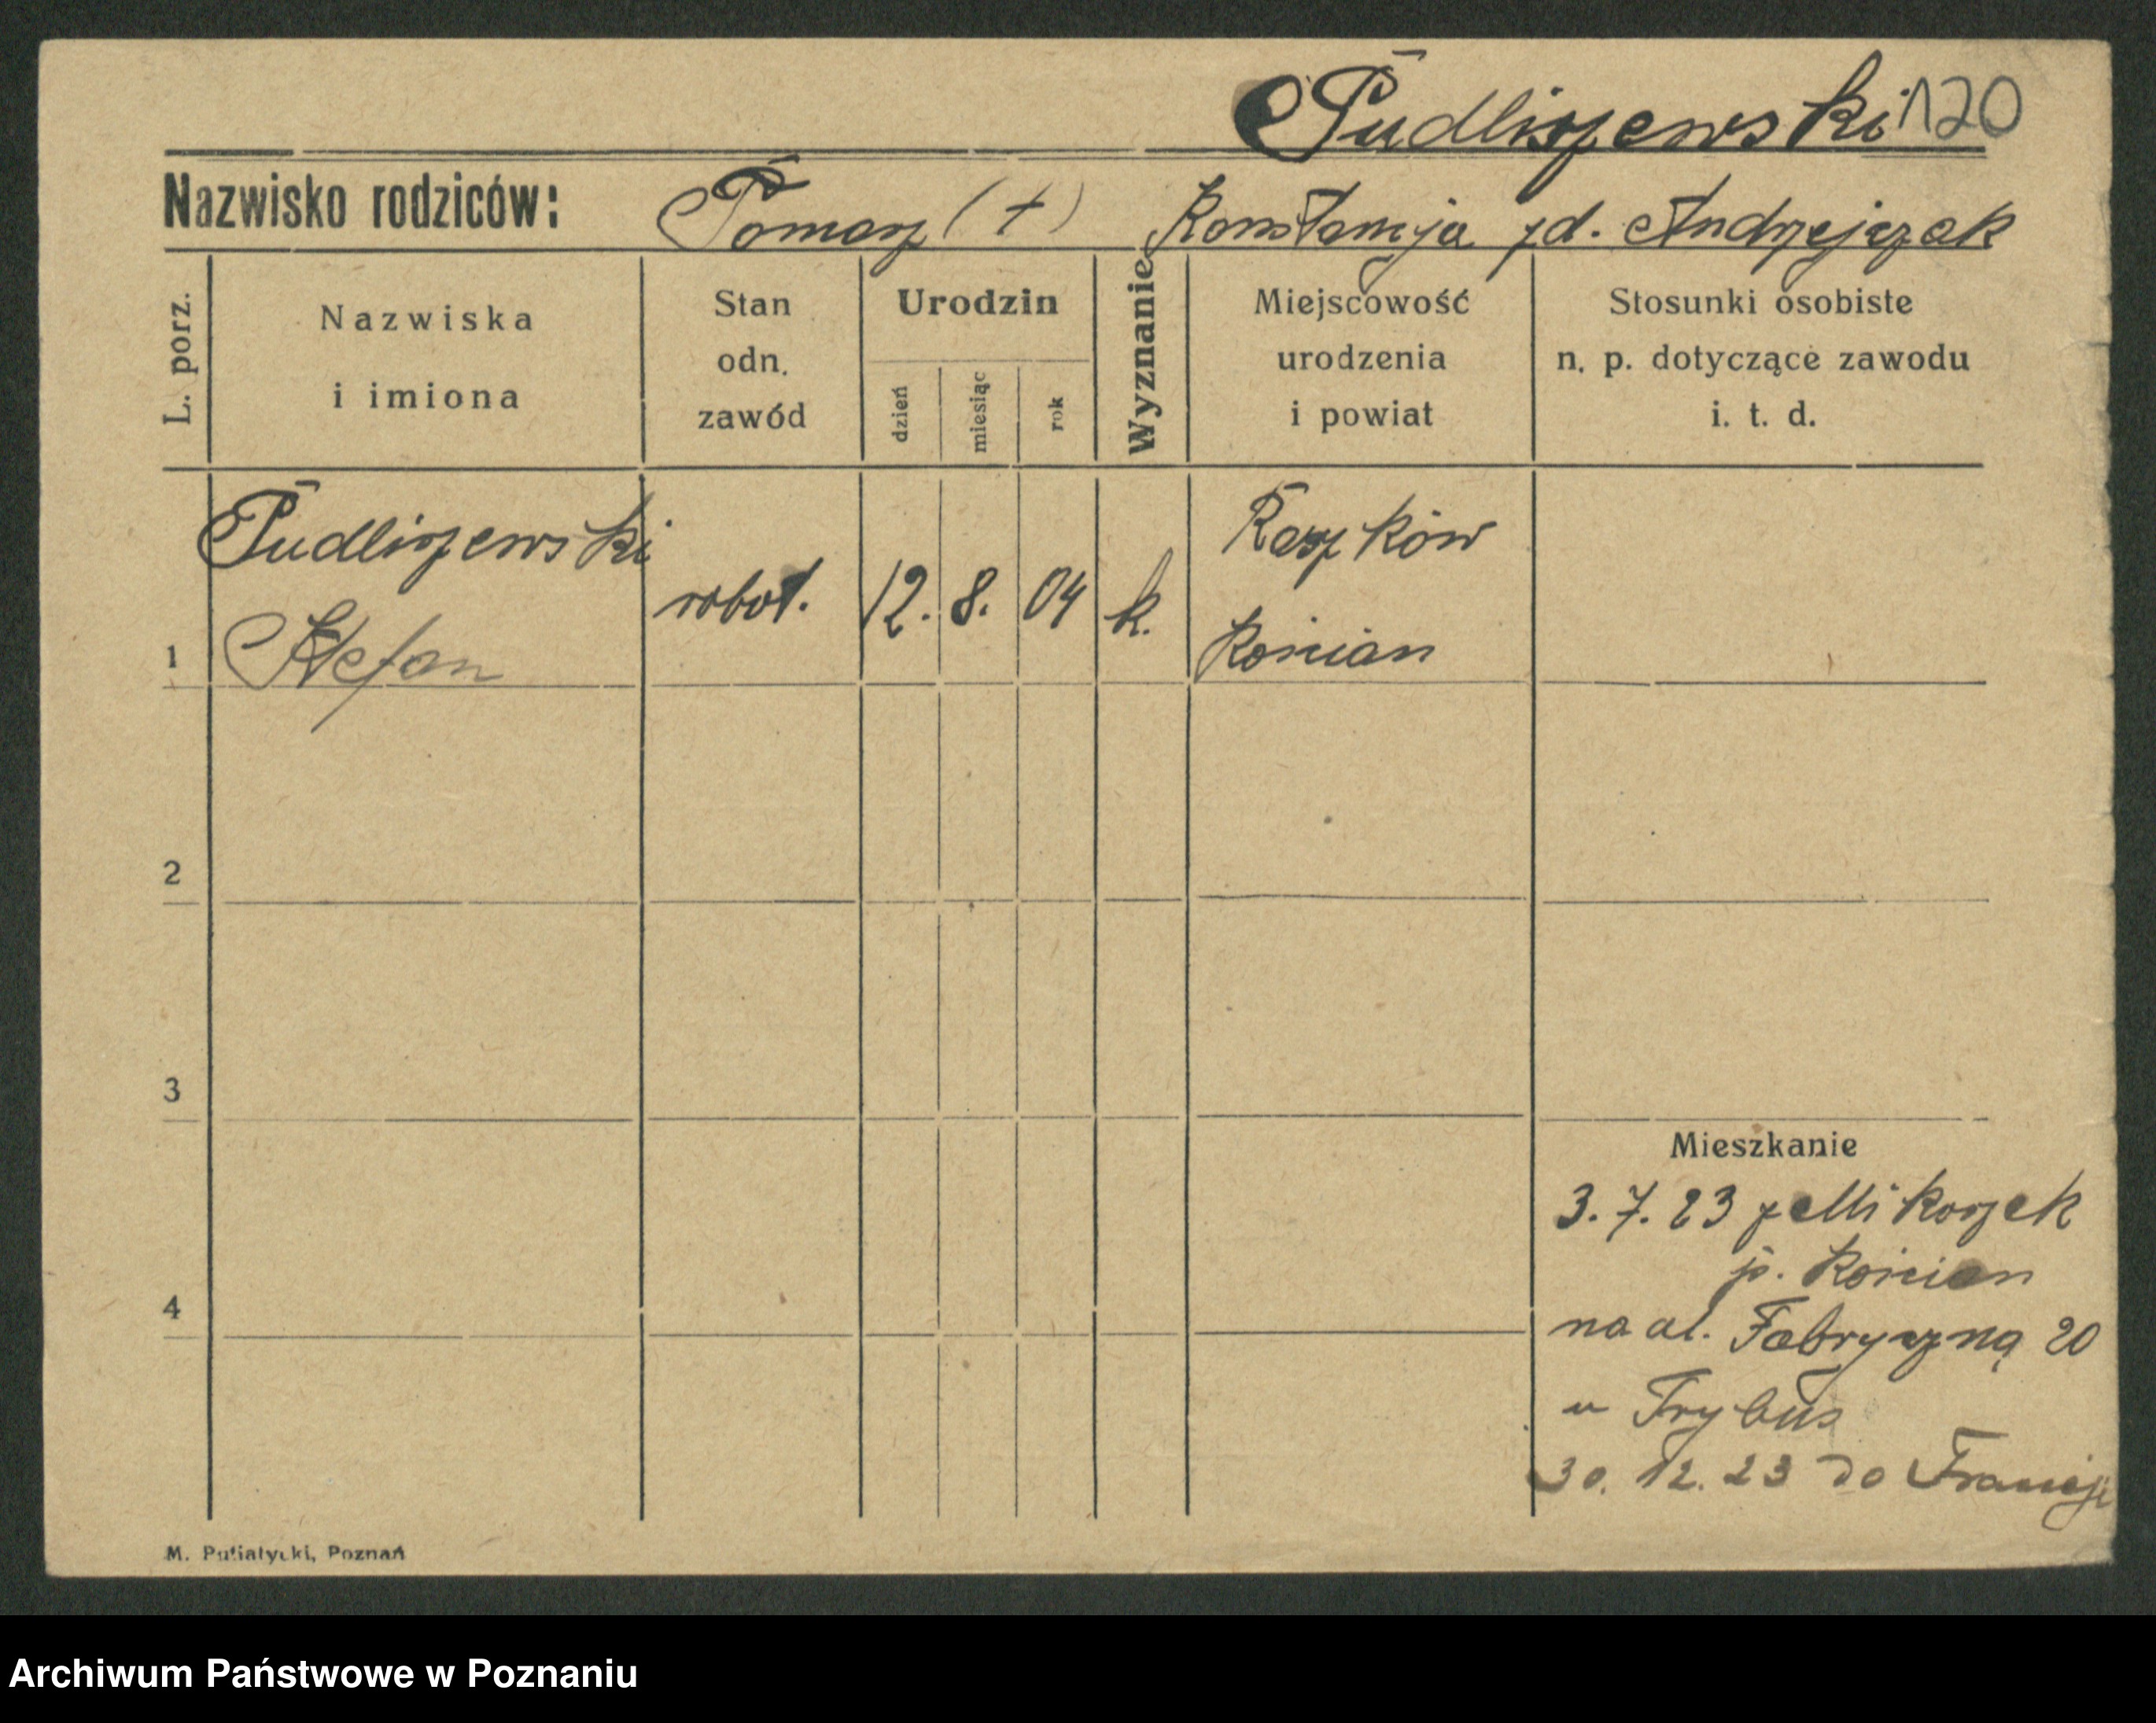 Pudliszewski 120
Nazwisko rodziców: Tomasz (+) Konstancja zd. Andrzejczak
L. porz.
Nazwiska
i imiona
Stan
odn.
zawód
Urodzin
dzień
miesiąc
rok
Wyznanie
Miejscowość
urodzenia
i powiat
Stosunki osobiste
n. p. dotyczące zawodu
i. t. d.
1
Pudliszewski
Stefan
robot.
12. 8. 04
k.
Raszków
Kościan
2
3
4
Mieszkanie
3. 7. 23 z Mikoszek
p. Kościan
na ul. Fabryczną 20
u Trybus
30. 12. 23 do Francji
M. Putiatycki, Poznań
Archiwum Państwowe w Poznaniu